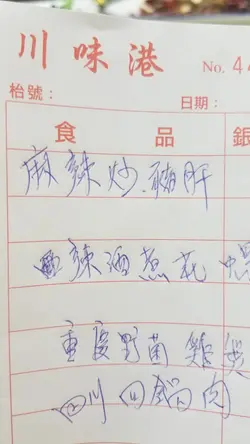 川味港
No. 4
枱號：
日期：
食品 銀
麻辣炒豬肝
辣酒煮花
重慶野菌雞煲
四川回鍋肉